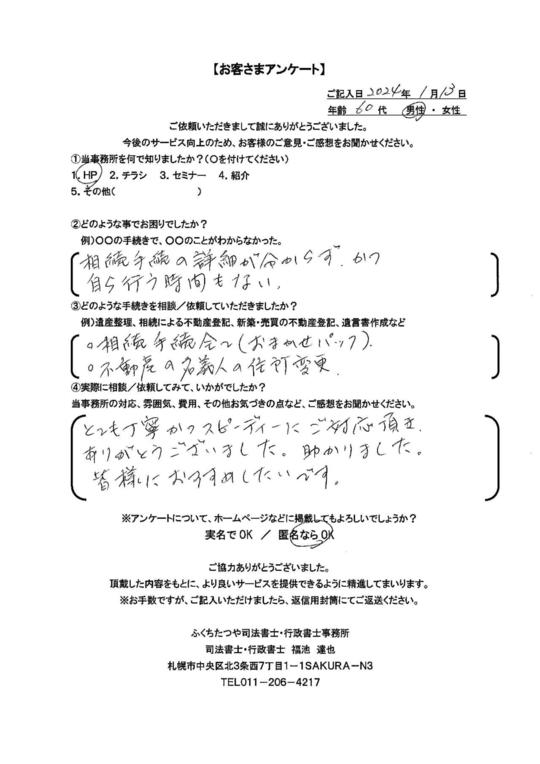 【お客さまアンケート】
ご記入日 2024年 1月13日
年齢 60代 男性・女性
ご依頼いただきまして誠にありがとうございました。
今後のサービス向上のため、お客様のご意見・ご感想をお聞かせください。
①当事務所を何で知りましたか？(○を付けてください)
1. HP 2. チラシ 3. セミナー 4. 紹介
5. その他( )
②どのような事でお困りでしたか？
例)○○の手続きで、○○のことがわからなかった。
相続手続の詳細が分からず、かつ
自ら行う時間もない。
③どのような手続きを相談／依頼していただきましたか？
例)遺産整理、相続による不動産登記、新築・売買の不動産登記、遺言書作成など
○相続手続全て(おまかせパック).
○不動産の名義人の住所変更.
④実際に相談／依頼してみて、いかがでしたか？
当事務所の対応、雰囲気、費用、その他お気づきの点など、ご感想をお聞かせください。
とても丁寧かつスピーディーにご対応頂き、
ありがとうございました。助かりました。
皆様におすすめしたいです。
※アンケートについて、ホームページなどに掲載してもよろしいでしょうか？
実名でOK ／ 匿名ならOK
ご協力ありがとうございました。
頂戴した内容をもとに、より良いサービスを提供できるように精進してまいります。
※お手数ですが、ご記入いただけましたら、返信用封筒にてご返送ください。
ふくちたつや司法書士・行政書士事務所
司法書士・行政書士 福池 達也
札幌市中央区北3条西7丁目1－1SAKURA－N3
TEL011－206－4217